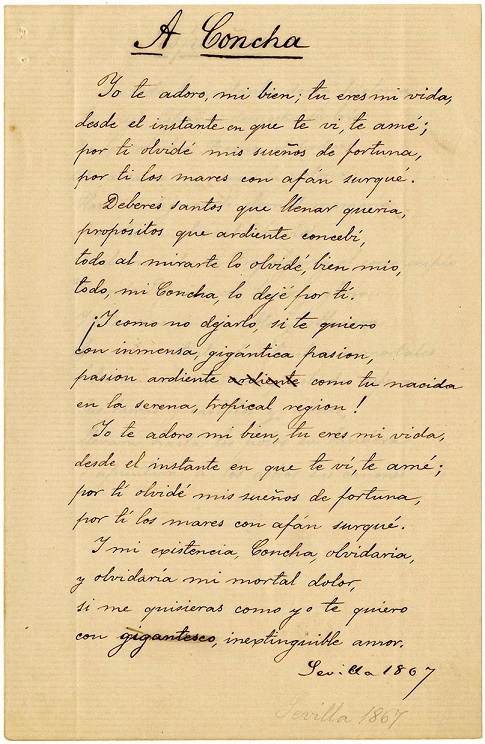 A Concha
Yo te adoro, mi bien; tu eres mi vida,
desde el instante en que te vi, te amé;
por ti olvidé mis sueños de fortuna,
por ti los mares con afán surqué.
Deberes santos que llenar queria,
propósitos que ardiente concebí,
todo al mirarte lo olvidé, bien mio,
todo, mi Concha, lo dejé por tí.
¡I como no dejarlo, si te quiero
con inmensa, gigántica pasion,
pasion ardiente ardiente como tu nacida
en la serena, tropical region!
Yo te adoro mi bien, tu eres mi vida,
desde el instante en que te ví, te amé;
por tí olvidé mis sueños de fortuna,
por tí los mares con afán surqué.
I mi existencia, Concha, olvidaria,
y olvidaría mi mortal dolor,
si me quisieras como yo te quiero
con gigantesco, inextinguible amor.
Sevilla 1867
Sevilla 1867